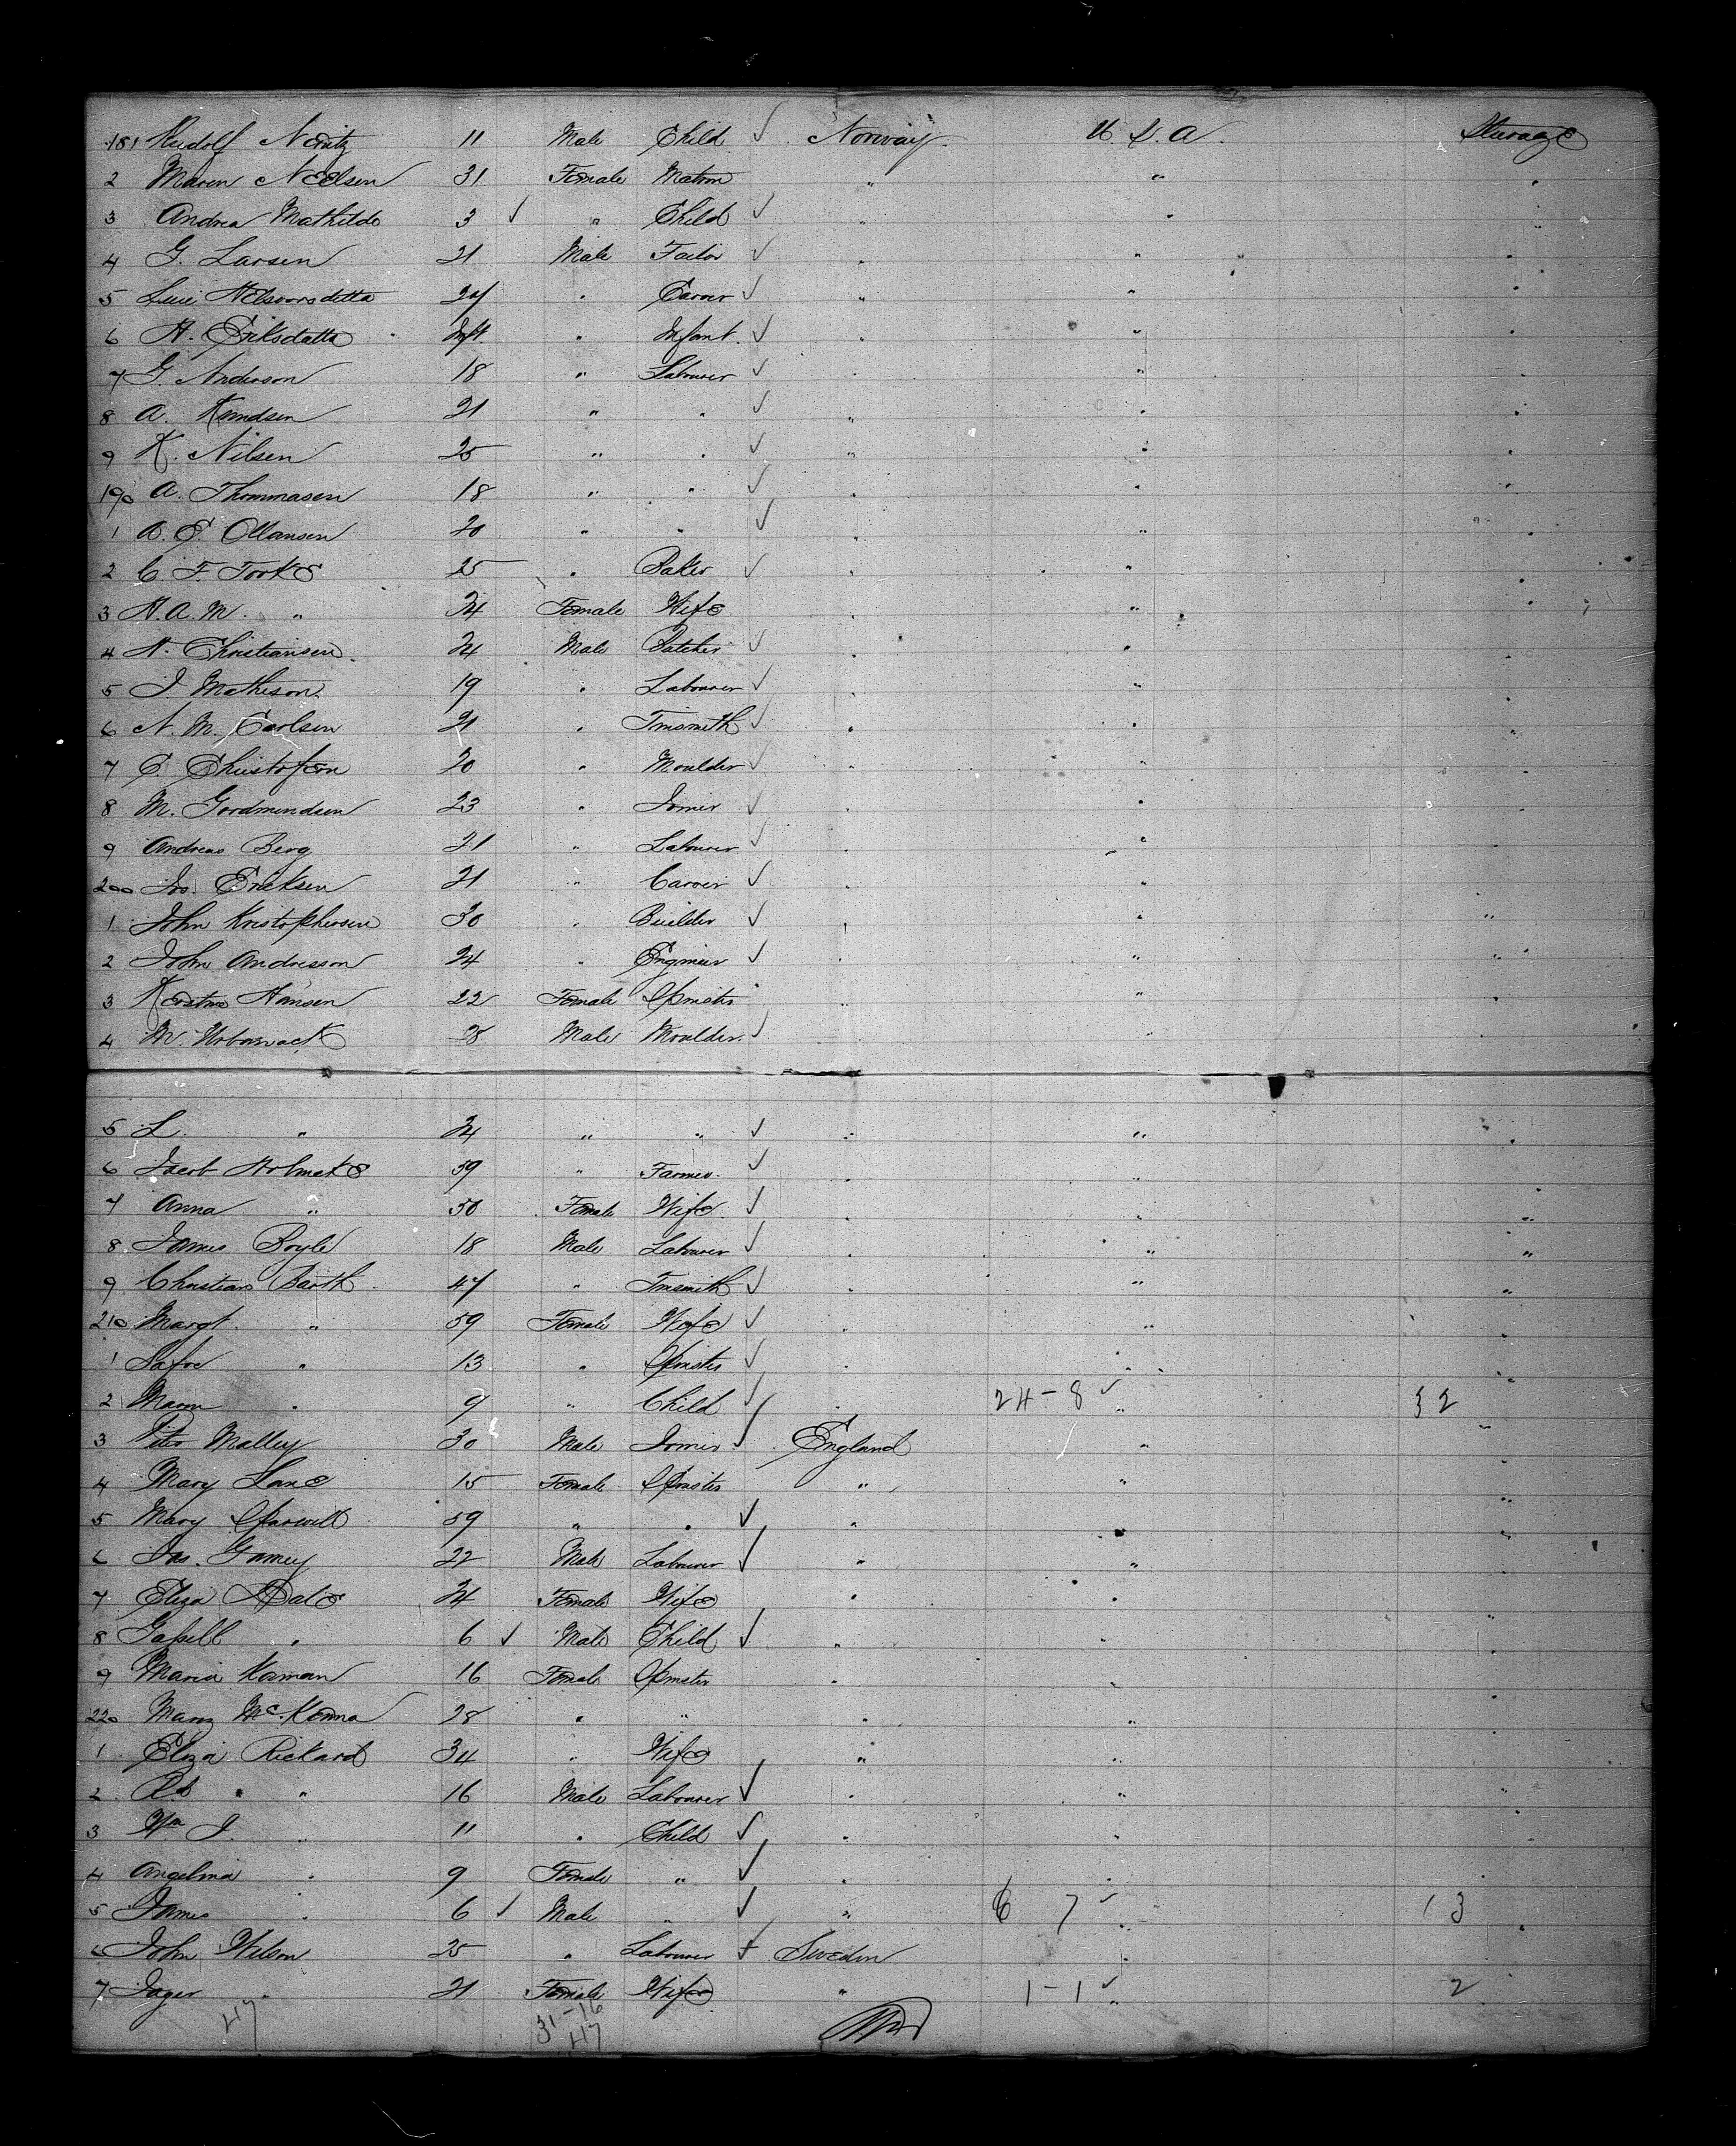 181 Rudolf 11 Male Child ✓ Norway U. S. A. Steerage
2 Maren Neelsen 31 Female Matron " " "
3 Andrea Mathilde 3 ✓ " Child ✓ " " "
4 G. Larsen 21 Male Tailor ✓ " " "
5 24 " Carver ✓ " " "
6 Eriksdatta Inft. " Infant ✓ " " "
7 G. Anderson 18 " Labourer ✓ " " "
8 A. Kundsen 21 " " ✓ " " "
9 K. Nilsen 25 " " ✓ " " "
190 A. Thommasen 18 " " ✓ " " "
1 Ollansen 20 " " ✓ " " "
2 C. F. Torke 25 " Baker ✓ " " "
3 H. A. M. " 24 Female Wife " " "
4 H. Christiansen 24 Male Butcher ✓ " " "
5 J. Mathison 19 " Labourer ✓ " " "
6 N. M. Carlsen 21 " Tinsmith ✓ " " "
7 C. Christofson 20 " Moulder ✓ " " "
8 M. Gordmundsen 23 " Joiner ✓ " " "
9 Andreas Berg 21 " Labourer ✓ " " "
200 Ericksen 21 " Carver ✓ " " "
1 John Kristophersen 30 " Builder ✓ " " "
2 John Andresson 24 " Engineer ✓ " " "
3 Hansen 22 Female Spinster " " "
4 28 Male Moulder ✓ " " "
5 L. " 24 " " ✓ " " "
6 Jacob 59 " Farmer ✓ " " "
7 Anna " 50 Female Wife ✓ " " "
8 James Boyle 18 Male Labourer ✓ " " "
9 Christian Barth 47 " Tinsmith ✓ " " "
210 Margt. " 59 Female Wife ✓ " " "
1 " 13 " Spinster ✓ " " "
2 " 9 " Child ✓ " 24-8 ✓ " 32 "
3 Peter Malley 30 Male Joiner ✓ England " "
4 Mary Lane 15 Female Spinster " " "
5 Mary 59 " " ✓ " " "
6 Jas. 22 Male Labourer ✓ " " "
7 Eliza Dale 24 Female Wife " " "
8 " 6 ✓ Male Child ✓ " " "
9 Maria 16 Female Spinster " " "
220 Mary McKenna 28 " " " " "
1 Eliza Rickard 34 " Wife " " "
2 " 16 Male Labourer ✓ " " "
3 Wm J. " 11 " Child ✓ " " "
4 Angelina " 9 Female " ✓ " " "
5 James " 6 ✓ Male " ✓ " 6 7 ✓ " 13 "
6 John Wilson 25 " Labourer + Sweden " "
7 " 21 Female Wife " 1-1 ✓ " 2
47 31-16
47